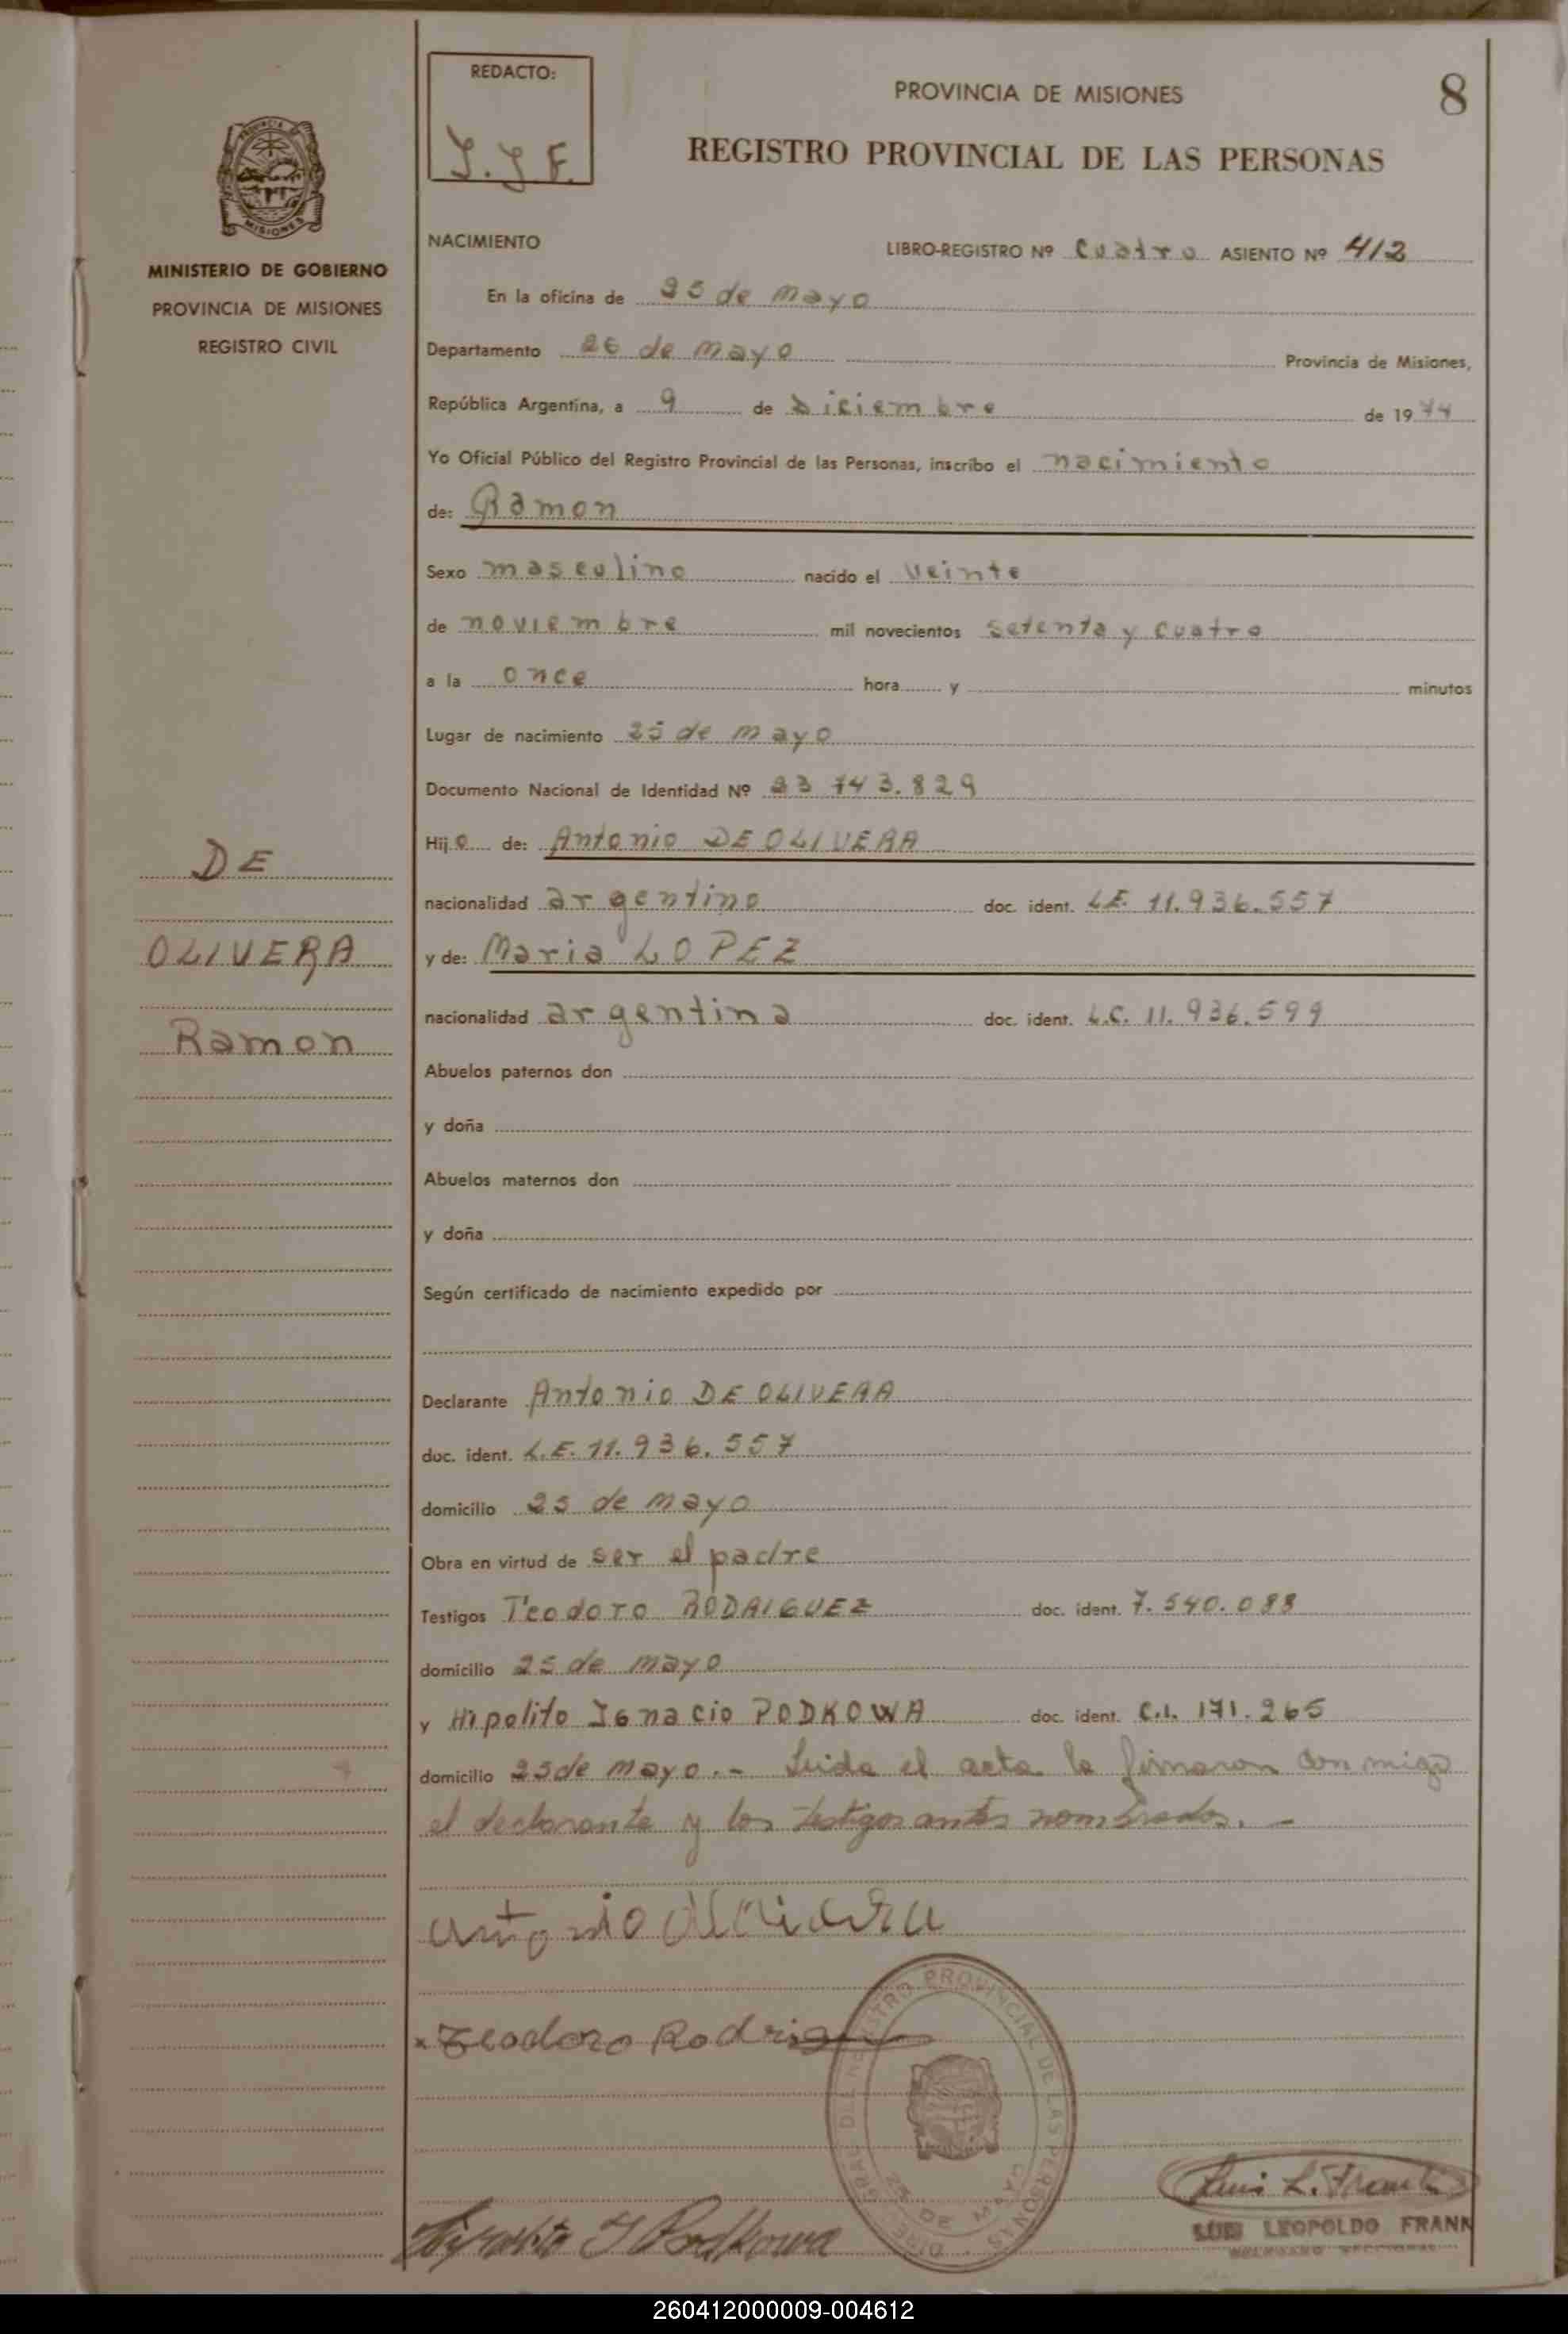 REDACTO:
J.J F.
PROVINCIA DE MISIONES
8
REGISTRO PROVINCIAL DE LAS PERSONAS
PROVINCIA
MISIONES
MINISTERIO DE GOBIERNO
PROVINCIA DE MISIONES
REGISTRO CIVIL
NACIMIENTO
LIBRO-REGISTRO Nº Cuatro ASIENTO Nº 412
En la oficina de 25 de mayo
Departamento 25 de mayo Provincia de Misiones,
República Argentina, a 9 de Diciembre de 1974
Yo Oficial Público del Registro Provincial de las Personas, inscribo el nacimiento
de: Ramon
Sexo masculino nacido el veinte
de noviembre mil novecientos setenta y cuatro
a la once hora y minutos
Lugar de nacimiento 25 de mayo
Documento Nacional de Identidad Nº 23 743.829
Hijo de: Antonio DE OLIVERA
nacionalidad argentino doc. ident. L.E. 11.936.557
y de: Maria LOPEZ
nacionalidad argentina doc. ident. L.C. 11.936.599
DE
OLIVERA
Ramon
Abuelos paternos don
y doña
Abuelos maternos don
y doña
Según certificado de nacimiento expedido por
Declarante Antonio DE OLIVERA
doc. ident. L.E. 11.936.557
domicilio 25 de mayo
Obra en virtud de ser el padre
Testigos Teodoro RODRIGUEZ doc. ident. 7.540.088
domicilio 25 de mayo
y Hipolito Ignacio PODKOWA doc. ident. C.I. 171.265
domicilio 25 de mayo.- Leida el acta la firmaron conmigo
el declarante y los testigos antes nombrados.-
Teodoro Rodrig
REGISTRO PROVINCIAL DE LAS PERSONAS
25 DE MAYO
Luis L. Frank
LUIS LEOPOLDO FRANK
Podkowa
260412000009-004612